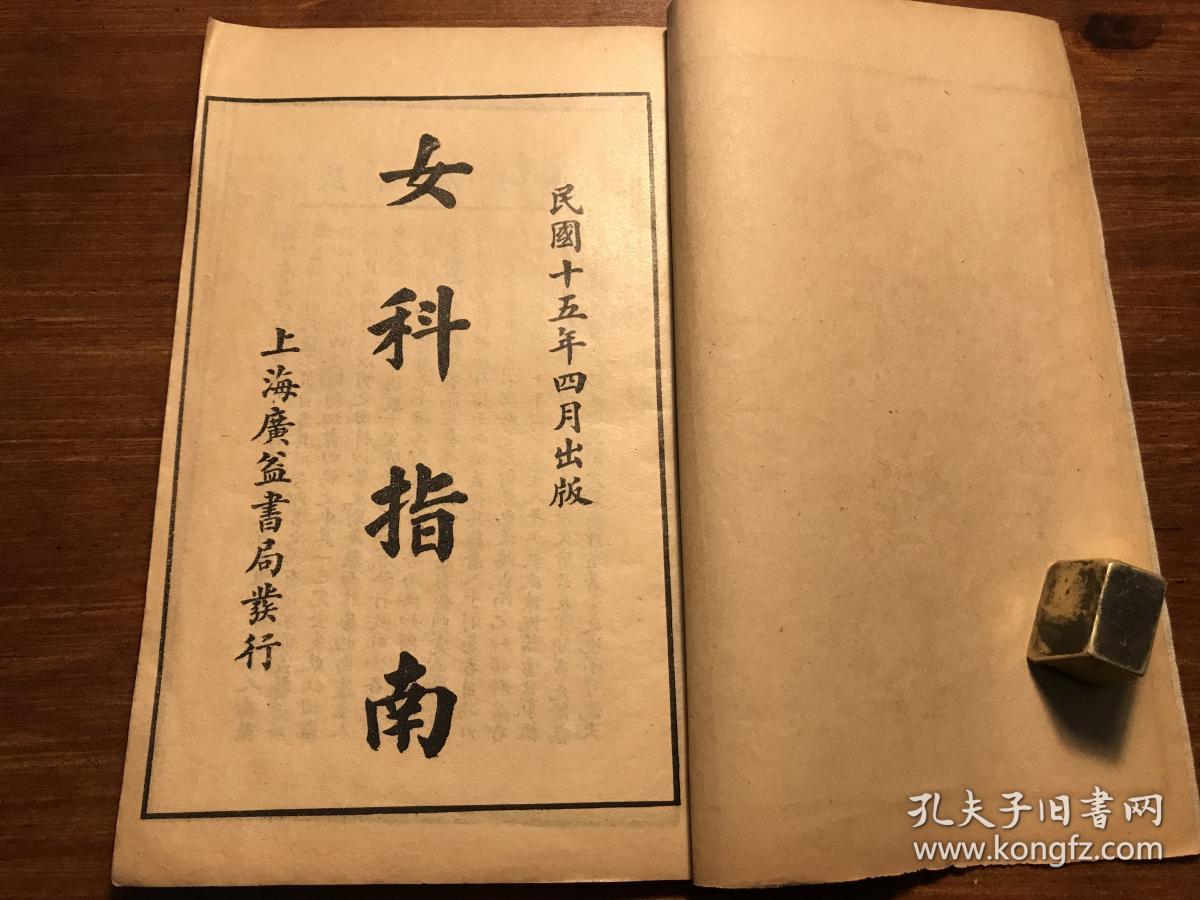 民國十五年四月出版
女科指南
上海廣益書局發行
孔夫子旧书网
www.kongfz.com